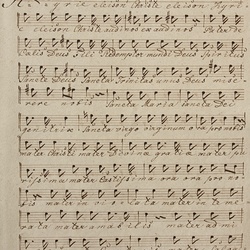 Kyrie eleison Christe eleison Kyri
e eleison Christe audi nos exaudi nos Pater de
Caelis Deus Fili Redemptor mundi Deus Spiritus
Sancte Deus Sancta Trinitas unus Deus mise
rere nobis Sancta Maria Sancta Dei
genitrix Sancta virgo virginum ora pro nobis
mater Christi mater Divina gratia mater pu
rissima mater Castissima ora ora pro no
bis mater in vi o la ta mater in te me
rata mater amabilis mater admi